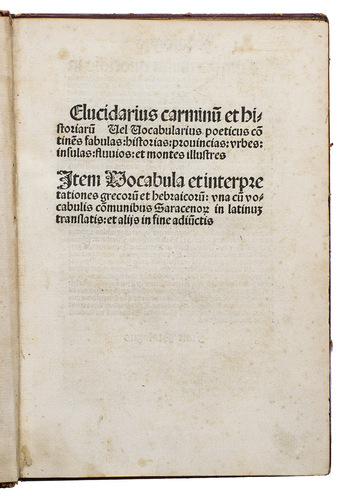 Elucidarius carminū et hi-
storiarū Vel Vocabularius poeticus cō
tinēs fabulas:historias:prouincias:vrbes:
insulas:fluuios:et montes illustres
Item Vocabula et interpre
tationes grecorū et hebraicorū: vna cū vo-
cabulis cōmunibus Saracenoꝝ in latinuꝫ
translatis:et alijs in fine adiūctis